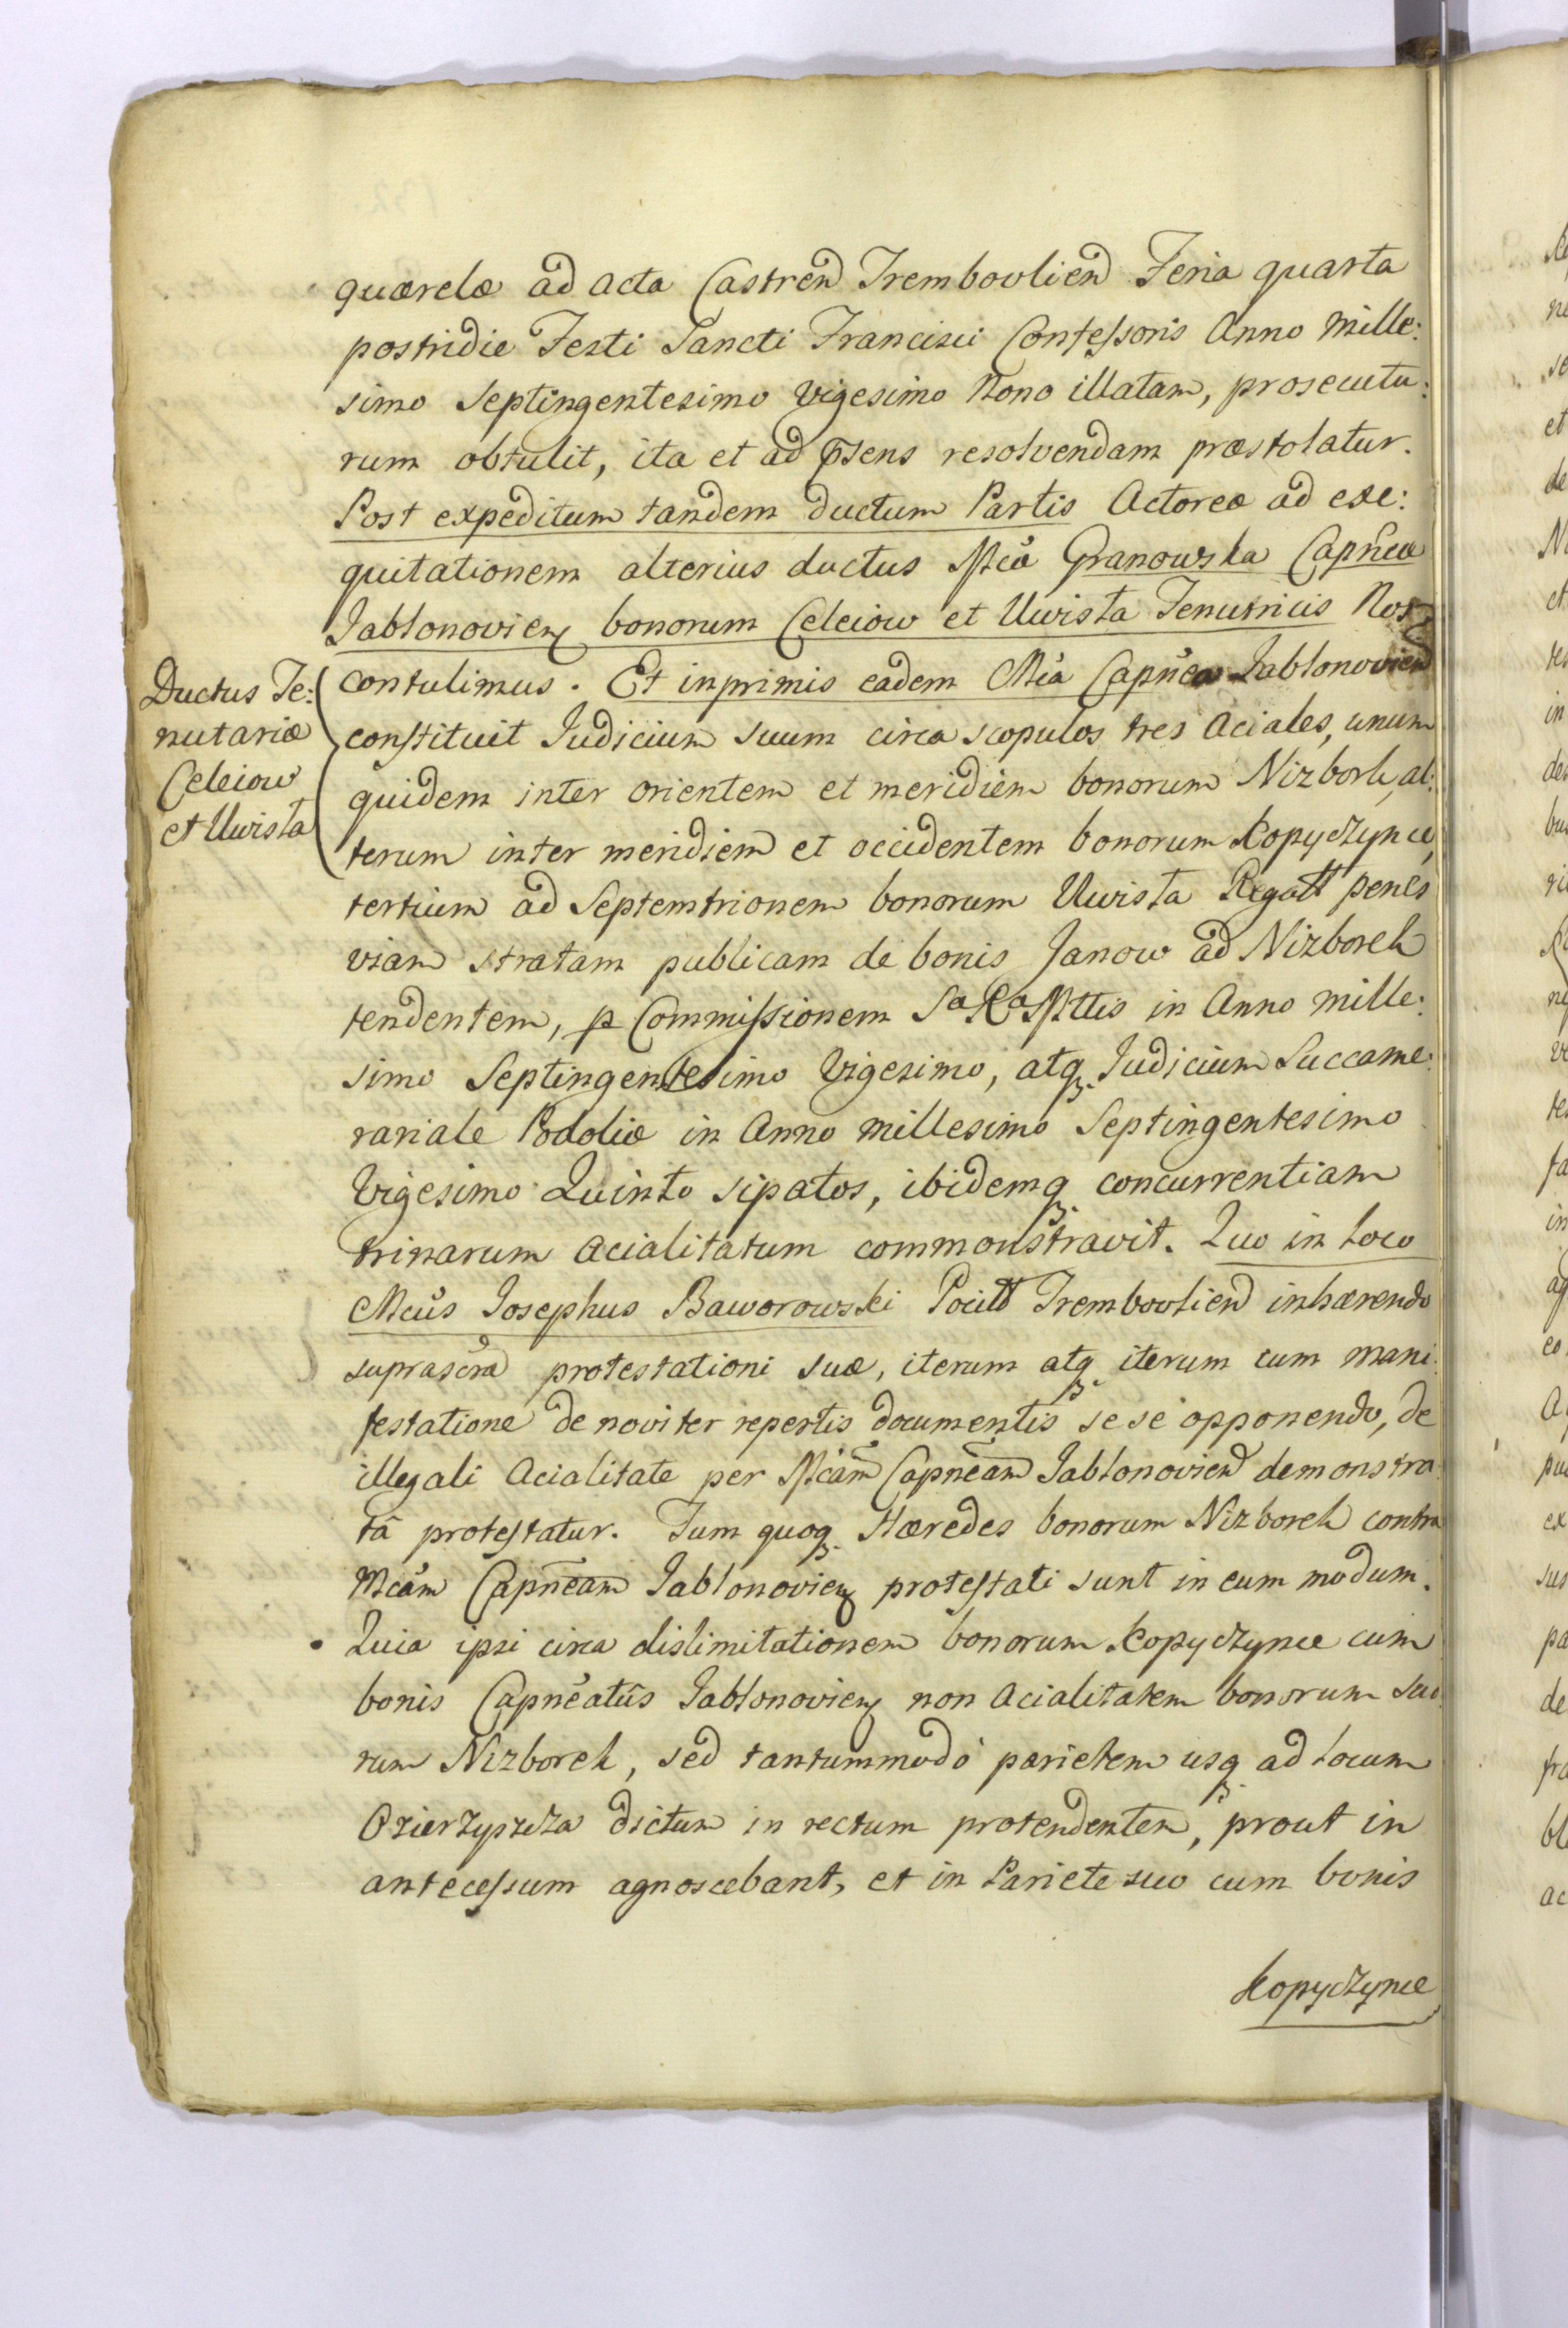 quærelæ ad acta Castren Trembovlien Feria quarta
postridie Festi Sancti Francisci Confessoris Anno mille:
simo Septingentesimo Vigesimo Nono illatam, prosecutu:
rum obtulit, ita et ad psens resolvendam præstolatur.
Post expeditum tandem ductum Partis Actoreæ ad exe:
quitationem alterius ductus Mcæ Granowska Capneæ
Jablonovien bonorum Celeiow et Uwista Tenutricis Nos
Ductus Te:
nutariæ
Celeiow
et Uwista
contulimus. Et inprimis eadem Mca Capnea Jablonovien
constituit Judicium suum circa scopulos tres aciales, unum
quidem inter orientem et meridiem bonorum Nizbork, al:
terum inter meridiem et occidentem bonorum Kopyczynce,
tertium ad Septemtrionem bonorum Uwista Regall penes
viam stratam publicam de bonis Janow ad Nizborek
tendentem, p Commissionem Sa Ra Mttis in Anno mille:
simo Septingentesimo Vigesimo, atq Judicium Succame:
rariale Podoliæ in Anno millesimo Septingentesimo
Vigesimo Quinto sipatos, ibidemq concurrentiam
trinarum acialitatum commonstravit. Quo in loco
Mcus Josephus Baworowski Pocill Trembovlien inhærendo
suprascra protestationi suæ, iterum atq iterum cum mani:
festatione de noviter repertis documentis sese opponendo, de
illegali acialitate per Mcam Capneam Jablonovien demonstra:
tâ protestatur. Tum quoq Hæredes bonorum Nizborek contra
Mcam Capneam Jablonovien protestati sunt in eum modum.
Quia ipsi circa dislimitationem bonorum Kopyczynce cum
bonis Capneatus Jablonovien non acialitatem bonorum suo
rum Nizborek, sed tantummodò parietem usq ad locum
Ozierzyszcza dictum in rectum protendentem, prout in
antecessum agnoscebant, et in Pariete suo cum bonis
Kopyczynce